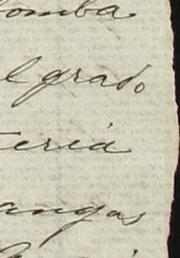 omba
l grado
teria
angas